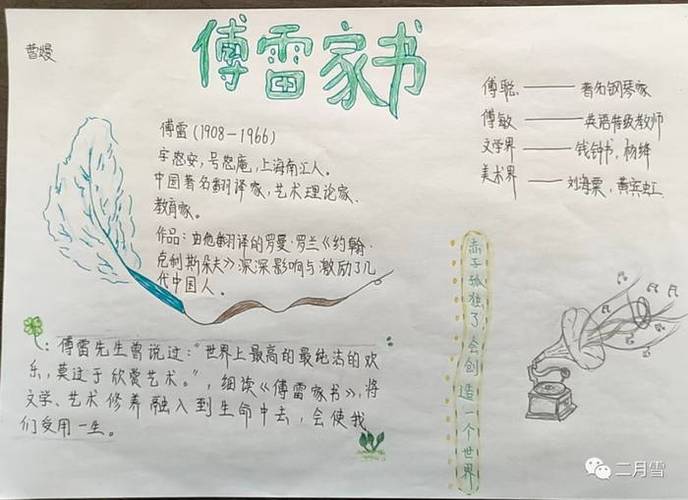 傅雷家书
曹嫚
傅雷(1908-1966)
字怒安,号怒庵,上海南汇人。
中国著名翻译家,艺术理论家、
教育家。
作品:由他翻译的罗曼·罗兰《约翰·
克利斯朵夫》深深影响与激励了几
代中国人。
傅聪——著名钢琴家
傅敏——英语特级教师
文学界——钱钟书,杨绛
美术界——刘海粟,黄宾虹
赤子孤独了,会创造一个世界
:傅雷先生曾说过:“世界上最高的最纯洁的欢
乐,莫过于欣赏艺术。”,细读《傅雷家书》,将
文学、艺术修养融入到生命中去,会使我
们受用一生。
二月雪